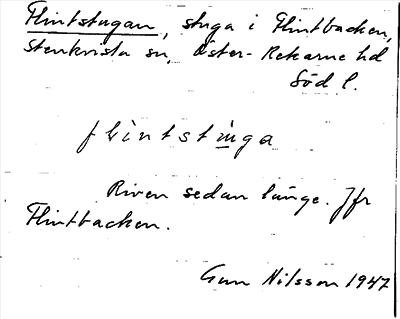 Flintstugan, stuga i Flintbacken,
Stenkvista sn, Öster-Rekarne hd
Söd l.
flìntstùga
Riven sedan länge. Jfr
Flintbacken.
Gun Nilsson 1947